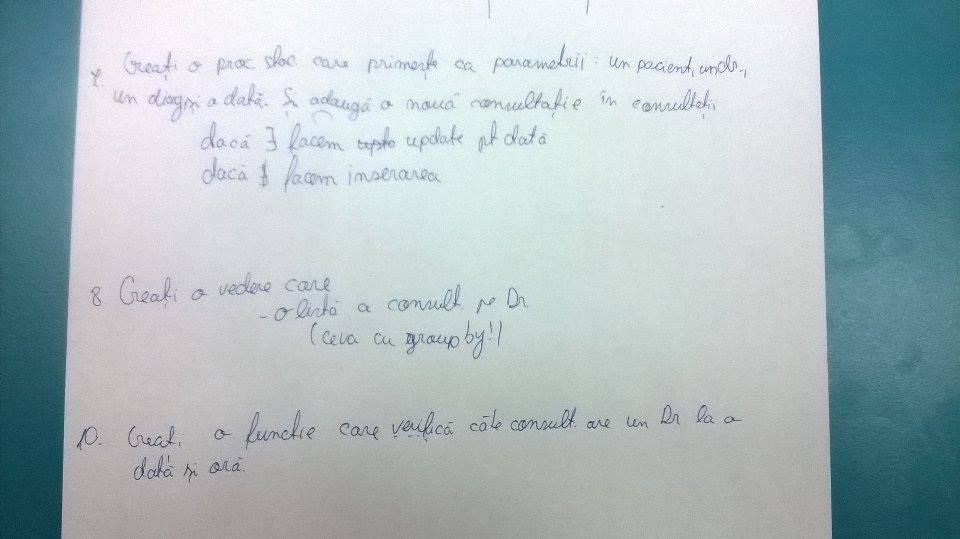 7. Creați o proc stoc care primește ca parametrii: un pacient, un dr.,
un diagn, o dată. Și adaugă o nouă consultație în consultații
dacă ∃ facem update pt dată
dacă ∄ facem inserarea
8 Creați o vedere care
- o listă a consult. pe Dr
(ceva cu group by!)
10. Creați o funcție care verifică câte consult. are un Dr la o
dată și oră.